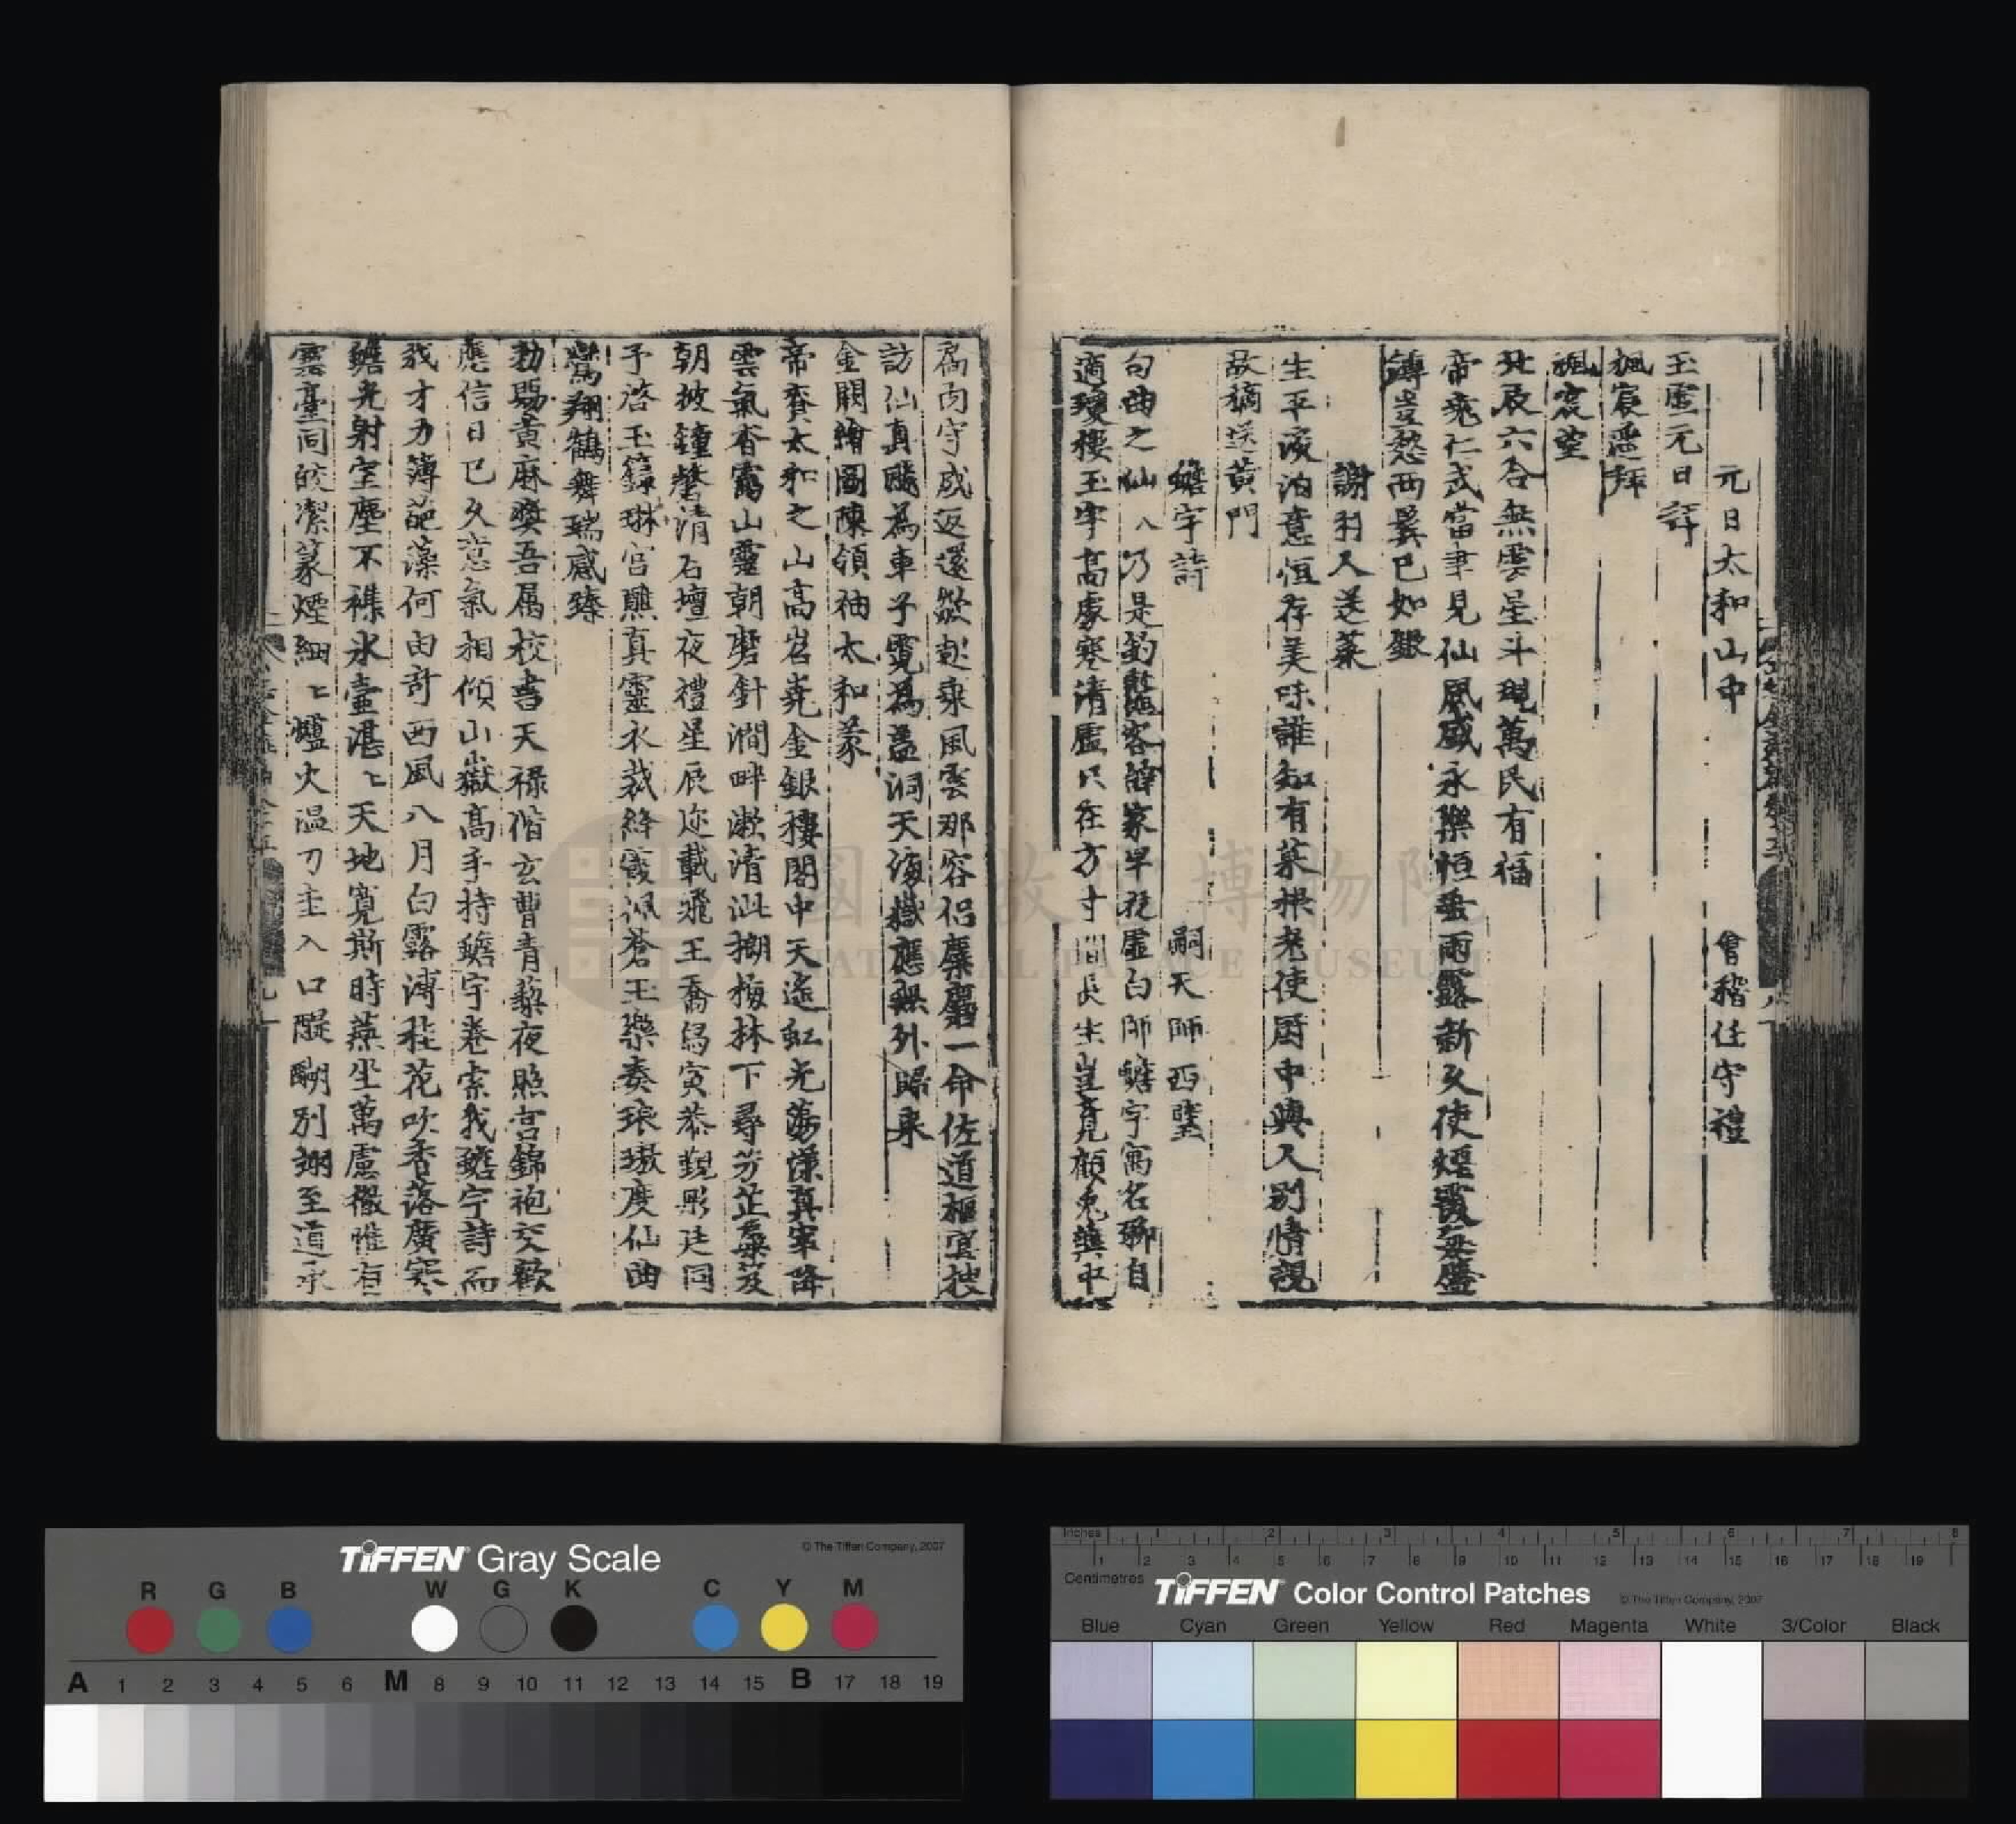 元日太和山中 會稽任守禮
玉虛元日詳
楓宸遥拜
楓宸望
北辰六合無雲星斗現萬民有福
帝堯仁武當聿見仙風盛永樂恒垂雨露新久使煙霞無盛
鑄豈愁兩鬢已如銀
謝羽人送菜
生平淡泊意恒存美味誰知有菜根堯使厨中與人别情親
故摘送黄門
蟾宇詩 嗣天師西璧
句曲之仙人乃是釣鰲客薛家早視虛白師蟾宇寓名聊自
適瓊樓玉宇高處寒清虛只在方寸間長生豈覓顧兔藥中
爲丙守成返還欻起乘風雲那容侣麋麕一命佐道樞
訪仙真飈為車子霓為蓋洞天海嶽應無外歸来
金闕繪圖陳領袖太和篆
帝賚太和之山高岧嶤金銀樓閣中天遙虹光蕩漾真宰降
雲氣杳靄山靈朝磨針澗畔漱清泚擲梅林下尋芳芷
朝披鐘磬清石壇夜禮星辰迩載飛王喬舄寅恭覲彤廷同
予啓玉籙琳宫醮真靈衣裁絳霞佩蒼玉樂奏琅璈度仙曲
鸞翔鶴舞瑞感臻
勑賜黄麻奬吾属校書天禄偕玄曹青藜夜照宫錦袍交歡
應信日已久意氣相傾山嶽高手持蟾宇卷索我蟾宇詩而
我才力簿葩藻何由奇西風八月白露漙桂花吹香落廣寒
蟾光射室塵不襍氷壺湛〻天地寛斯時燕坐萬慮徹惟有
雲臺同皎潔篆煙細〻爐火温刀圭入口醍醐别翊至道承
國立故宮博物院
NATIONAL PALACE MUSEUM
TIFFEN Gray Scale
© The Tiffen Company, 2007
R G B W G K C Y M
A 1 2 3 4 5 6 M 8 9 10 11 12 13 14 15 B 17 18 19
Inches 1 2 3 4 5 6 7 8
1 2 3 4 5 6 7 8 9 10 11 12 13 14 15 16 17 18 19
Centimetres
TIFFEN Color Control Patches
© The Tiffen Company, 2007
Blue Cyan Green Yellow Red Magenta White 3/Color Black